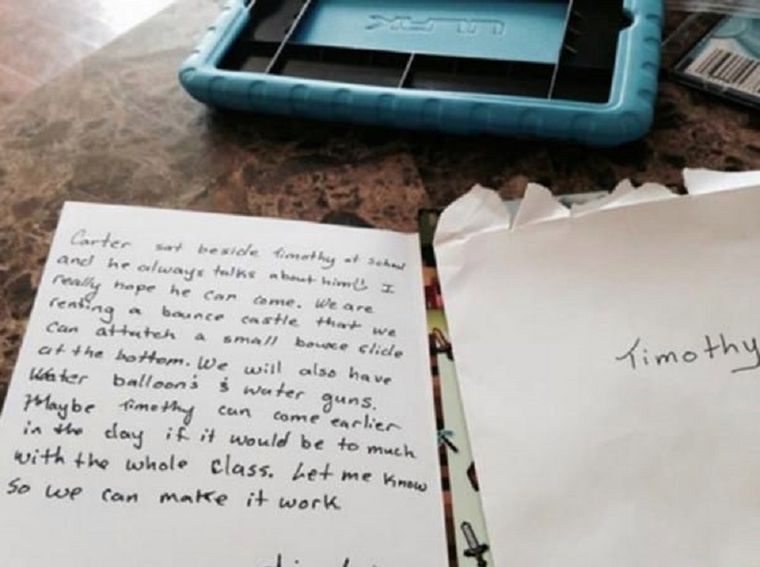 Carter sat beside Timothy at School
and he always talks about him I
really hope he can come. We are
renting a bounce castle that we
can attatch a small bounce slide
at the bottom. We will also have
Water balloon's & water guns.
Maybe Timothy can come earlier
in the day if it would be to much
with the whole class. Let me know
so we can make it work
Timothy